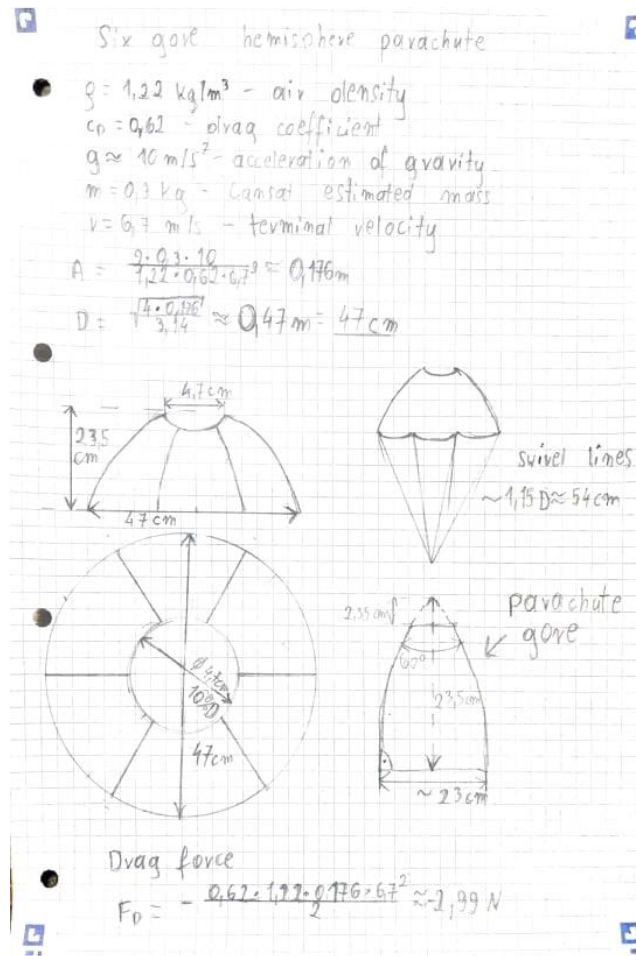 Six gore hemisphere parachute
ρ = 1,22 kg/m³ - air density
cD = 0,62 - drag coefficient
g ≈ 10 m/s² - acceleration of gravity
m = 0,3 kg - Cansat estimated mass
v = 6,7 m/s - terminal velocity
A = 2·0,3·10 / 1,22·0,62·6,7² = 0,176m
D = √4·0,176 / 3,14 ≈ 0,47 m = 47 cm
4,7cm
23,5
cm
47 cm
swivel lines
~1,15 D ≈ 54 cm
ø 4,7cm
10%D
47cm
parachute
gore
2,35 cm
60°
23,5cm
~ 23 cm
Drag force
FD = - 0,62·1,22·0,176·6,7² / 2 ≈ -2,99 N